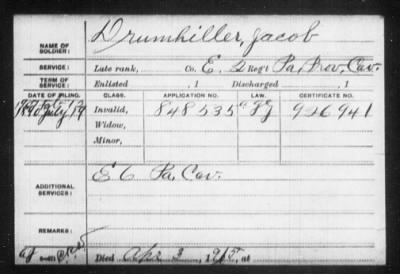 Drumhiller, Jacob
NAME OF SOLDIER:
SERVICE: Late rank, Co. E, 2 Reg't Pa. Prov. Cav.
TERM OF SERVICE: Enlisted , 1 Discharged , 1
DATE OF FILING. CLASS. APPLICATION NO. LAW. CERTIFICATE NO.
July Invalid, 848535 926941
Widow,
Minor,
E 6 Pa. Cav.
ADDITIONAL SERVICES:
REMARKS:
Died Apr 3, 1915, at